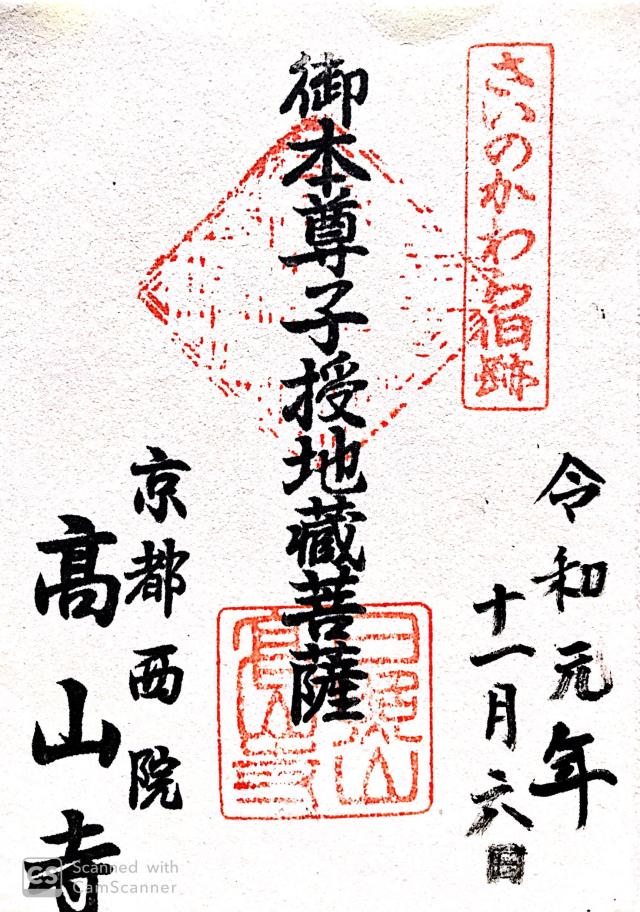 さいのかわら旧跡
令和元年
十一月六日
御本尊子授地蔵菩薩
京都西院
高山寺
Scanned with
CamScanner